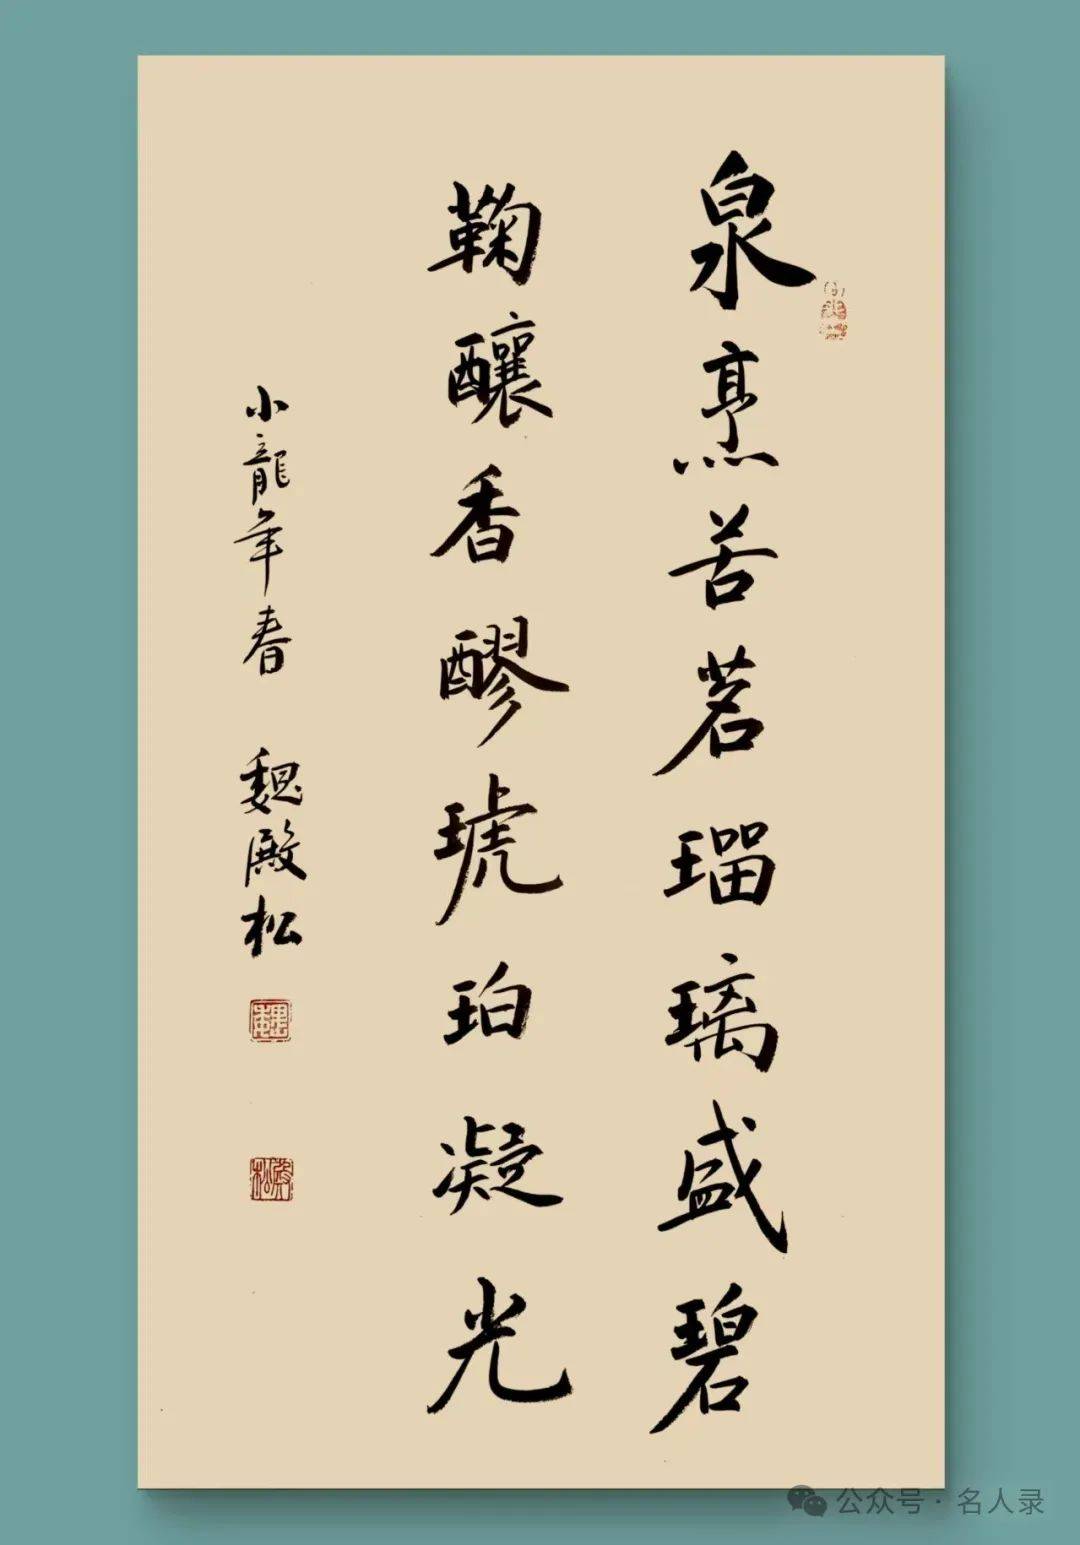 泉烹苦茗瑠璃盛碧
鞠釀香醪琥珀凝光
小龍年春 魏殿松
魏
殿松
公众号·名人录